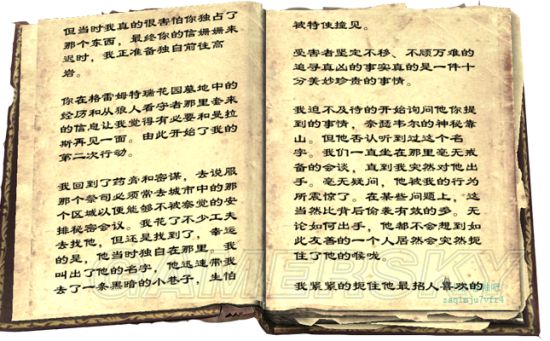 但当时我真的很害怕你独占了
那个东西，最终你的信姗姗来
迟时，我正准备独自前往高
岩。
你在格雷姆特瑞花园墓地中的
经历和从狼人看守者那里套来
的信息让我觉得有必要和曼拉
斯再见一面。由此开始了我的
第二次行动。
我回到了药膏和密谋，去说服
那个祭司必须常去城市中的那
个区域以便能够不被察觉的安
排秘密会议。我花了不少工夫
去找他，但还是找到了，幸运
的是，他当时独自在那里，我
叫出了他的名字，他迅速带我
去了一条黑暗的小巷子，生怕
被特使撞见。
受害者坚定不移、不顾万难的
追寻真凶的事实真的是一件十
分美妙珍贵的事情。
我迫不及待的开始询问他你提
到的事情，奈瑟韦尔的神秘靠
山。但他否认听到过这个名
字。我们一直坐在那里毫无戒
备的会谈，直到我突然对他出
手。毫无疑问，他被我的行为
所震惊了。在某些问题上，这
当然比背后偷袭有效的多。无
论如何出手，他都不会想到如
此友善的一个人居然会突然扼
住了他的喉咙。
我紧紧的扼住他最招人喜欢的
GAMERSKY
zaq1mju7vfr4